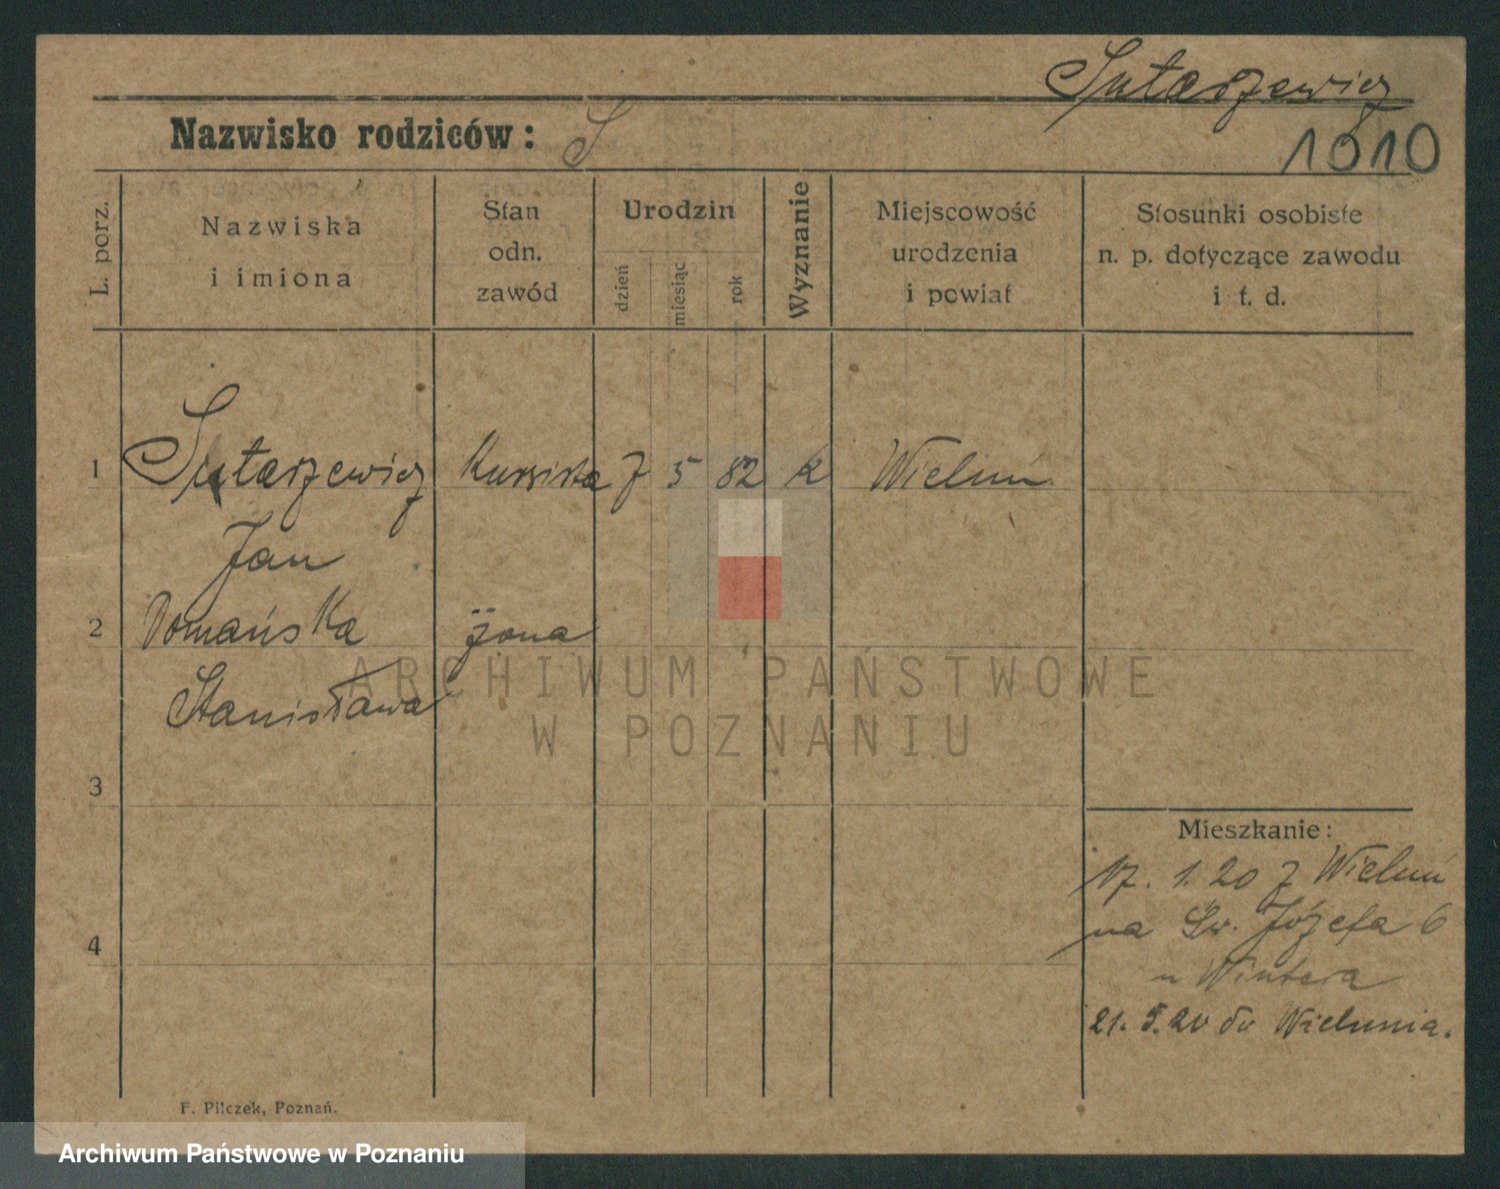 Sutaszewicz
1010
Nazwisko rodziców: S
L. porz.
Nazwiska i imiona
Stan odn. zawód
Urodzin
dzień
miesiąc
rok
Wyznanie
Miejscowość urodzenia i powiat
Stosunki osobiste n. p. dotyczące zawodu i t. d.
1 Sutaszewicz 7 5 82 k Wieluń
Jan
2 Domańska żona
Stanisława
3
4
Mieszkanie:
17. 1. 20 z Wieluń
na Św. Józefa 6
u Wintera
21. 5. 20 do Wielunia.
F. Pilczek, Poznań.
ARCHIWUM PAŃSTWOWE
W POZNANIU
Archiwum Państwowe w Poznaniu